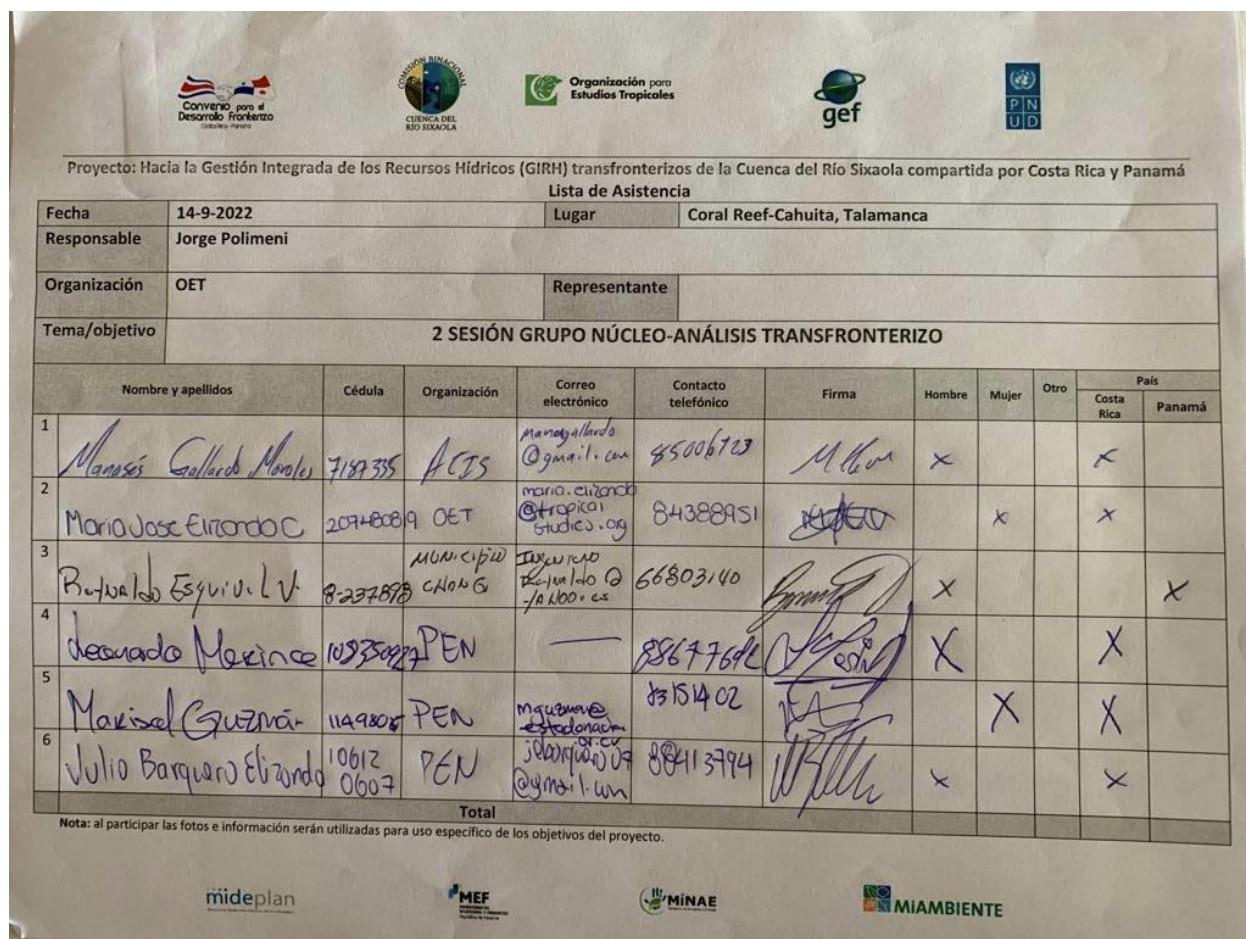 Convenio para el
Desarrollo Fronterizo
Costa Rica - Panamá
COMISIÓN BINACIONAL
CUENCA DEL
RÍO SIXAOLA
Organización para
Estudios Tropicales
gef
P N
U D
Proyecto: Hacia la Gestión Integrada de los Recursos Hídricos (GIRH) transfronterizos de la Cuenca del Río Sixaola compartida por Costa Rica y Panamá
Lista de Asistencia
Fecha 14-9-2022 Lugar Coral Reef-Cahuita, Talamanca
Responsable Jorge Polimeni
Organización OET Representante
Tema/objetivo 2 SESIÓN GRUPO NÚCLEO-ANÁLISIS TRANSFRONTERIZO
Nombre y apellidos Cédula Organización Correo electrónico Contacto telefónico Firma Hombre Mujer Otro País
Costa Rica Panamá
1 Manasés Gallardo Morales 7187335 ACTS @gmail.com 85006723 X X
2 Maria Jose Elizondo C 207480819 OET maria.elizondo @tropical studies.org 84388951 X X
3 Esquivel V. Municipio 66803140 X X
4 Leonardo Merino PEN — X X
5 Marisol Guzmán PEN 83151402 X X
6 Julio Barquero Elizondo 10612 0607 PEN @gmail.com 88413794 X X
Total
Nota: al participar las fotos e información serán utilizadas para uso específico de los objetivos del proyecto.
mideplan
MEF
MINAE
MiAMBIENTE